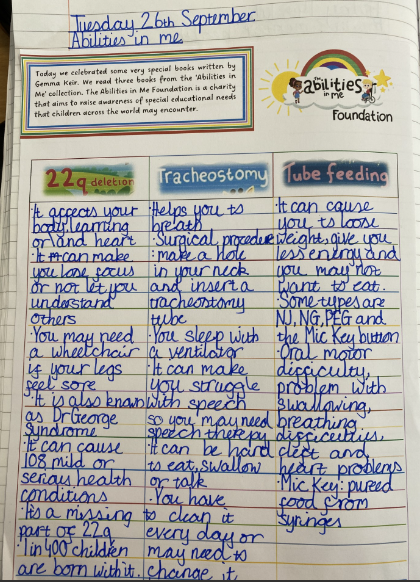 Tuesday 26th September.
Abilities in me
Today we celebrated some very special books written by
Gemma Keir. We read three books from the 'Abilities in
Me' collection. The Abilities in Me Foundation is a charity
that aims to raise awareness of special educational needs
that children across the world may encounter.
abilities
in me
Foundation
22q deletion
·It affects your
body, learning
or and heart
·It can make
you lose focus
or not let you
understand
others
·You may need
a wheelchair
if your legs
feel sore
·It is also known
as Dr George
Syndrome
·It can cause
108 mild or
serious health
conditions
·Its a missing
part of 22q
·1 in 400 children
are born with it.
Tracheostomy
·Helps you to
breath
·Surgical procedure
: make a hole
in your neck
and insert a
tracheostomy
tube
·You sleep with
a ventilator
·It can make
you struggle
with speech
so you may need
speech therapy
·It can be hard
to eat, swallow
or talk
·You have
to clean it
every day or
may need to
change it.
Tube feeding
·It can cause
you to loose
weight, give you
less energy and
you may not
want to eat.
·Some types are
NJ, NG, PEG and
the Mic Key button
·Oral motor
difficulty,
problem with
swallowing,
breathing
difficulties,
cleft and
heart problems
·Mic Key: pureed
food from
syringes